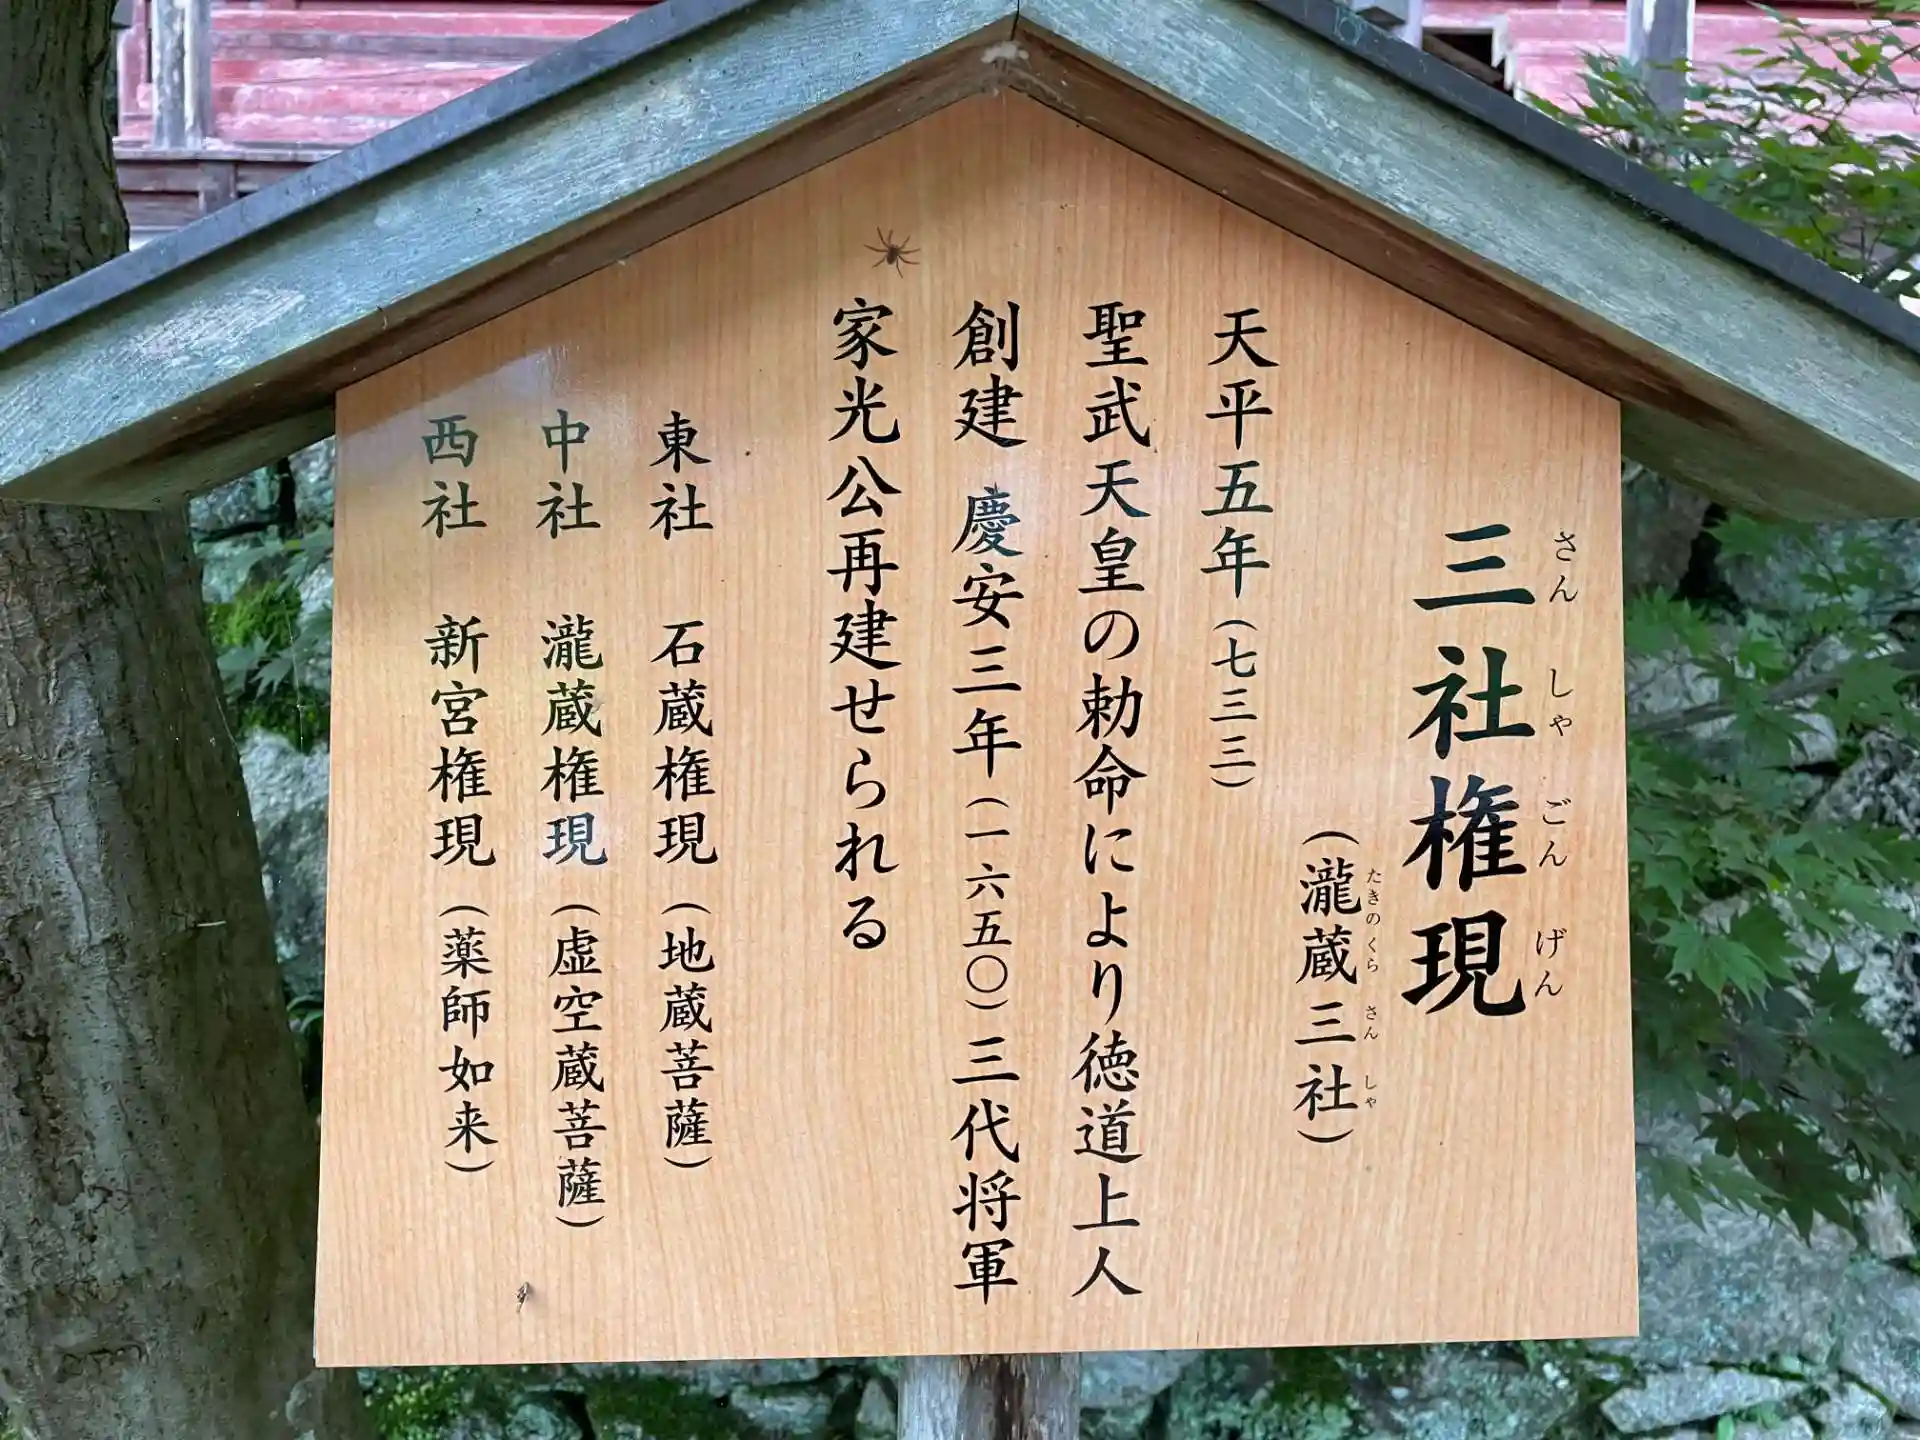 三社権現
さんしゃごんげん
（瀧蔵三社）
たきのくらさんしゃ
天平五年（七三三）
聖武天皇の勅命により徳道上人
創建 慶安三年（一六五〇）三代将軍
家光公再建せられる
東社 石蔵権現（地蔵菩薩）
中社 瀧蔵権現（虚空蔵菩薩）
西社 新宮権現（薬師如来）